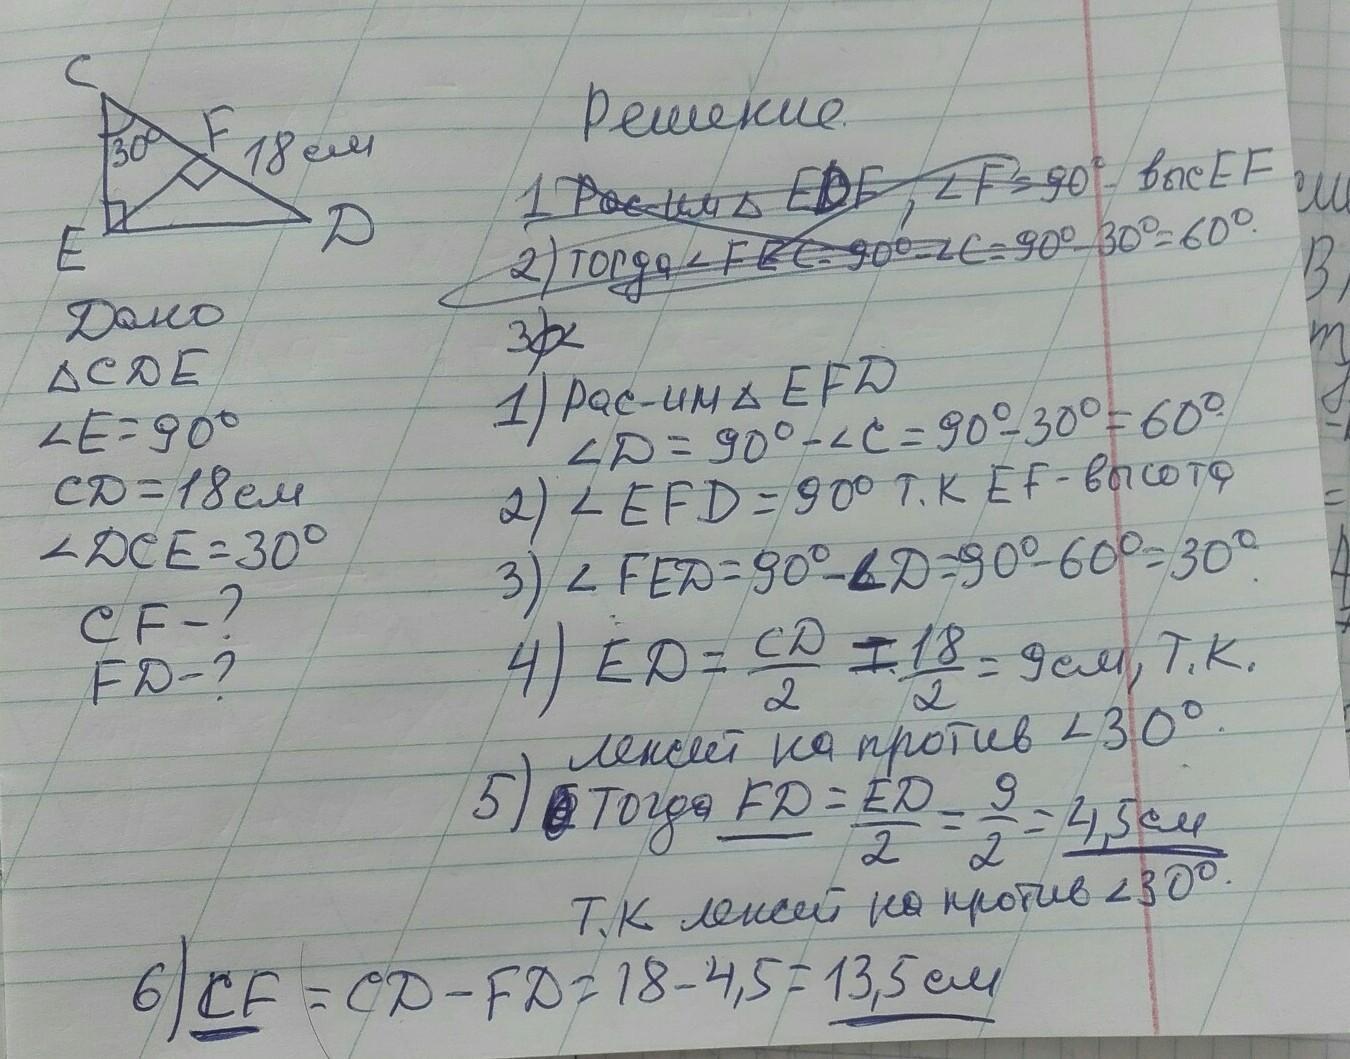 C
F
30°
18 см
E
D
Дано
△CDE
∠E=90°
CD=18см
∠DCE=30°
CF-?
FD-?
Решение.
1 Рас-им △ EDF, ∠F=90° высEF
2) тогда ∠FEC=90°-∠C=90°-30°=60°.
3)
1) Рас-им △ EFD
∠D=90°-∠C=90°-30°=60°
2) ∠EFD=90° т.к EF-высота
3) ∠FED=90°-∠D=90°-60°=30°.
4) ED=CD/2=18/2=9см, т.к.
лежит на против ∠30°.
5) Тогда FD=ED/2=9/2=4,5см
т.к лежит на против ∠30°.
6) CF=CD-FD=18-4,5=13,5см